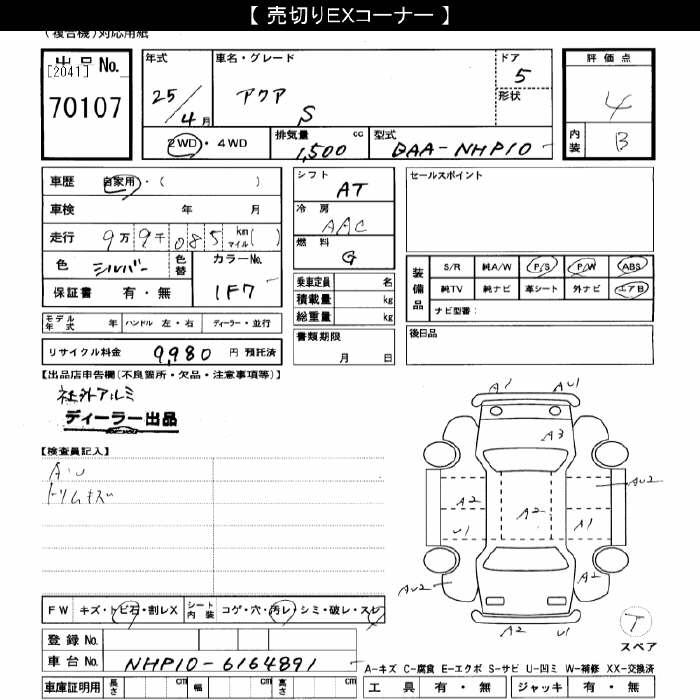 【 売切りEXコーナー 】
(複合機)対応用紙
出品 No.
[2041]
70107
年式
25/4月
車名・グレード
アクア S
ドア
5
形状
評価点
4
内装
B
2WD・4WD
排気量 cc
1,500
型式
DAA-NHP10
車歴 自家用・( )
車検 年 月
走行 9万9千085 km マイル( )
色 シルバー 色替
カラーNo.
1F7
保証書 有・無
シフト
AT
冷房
AAC
燃料
G
セールスポイント
装備品
S/R 純A/W P/S P/W ABS
純TV 純ナビ 革シート 外ナビ エアB
ナビ型番:
乗車定員 名
積載量 kg
総重量 kg
モデル年式 年 ハンドル 左・右 ディーラー・並行
リサイクル料金 9,980 円 預託済
書類期限
月 日
後日品
【出品店申告欄(不良箇所・欠品・注意事項等)】
社外アルミ
ディーラー出品
【検査員記入】
A・U
トリムキズ
A1 AU1
A3
AU2
A2
A2
U1
A1
AU2
A2
A2 U1
T
スペア
FW キズ・トビ石・割レX
シート内装 コゲ・穴・汚レ・シミ・破レ・スレ
登録 No.
車台 No. NHP10-6164891
車庫証明用 長さ cm 幅 cm 高さ cm
A-キズ C-腐食 E-エクボ S-サビ U-凹ミ W-補修 XX-交換済
工具 有・無 ジャッキ 有・無